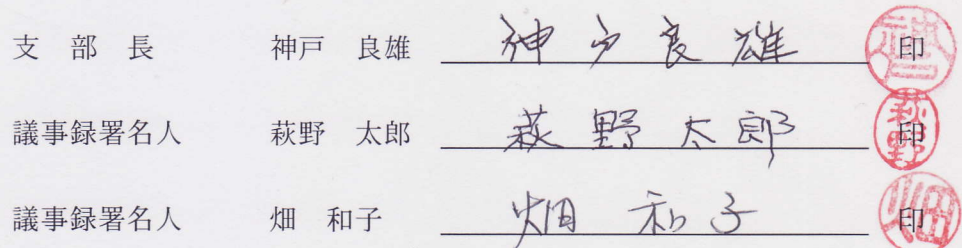 支 部 長 神戸 良雄 神戸良雄 印 神戸
議事録署名人 萩野 太郎 萩野太郎 印 萩野
議事録署名人 畑 和子 畑和子 印 畑